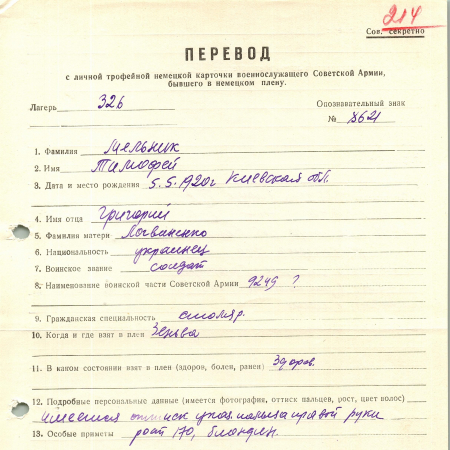 214
Сов. секретно
ПЕРЕВОД
с личной трофейной немецкой карточки военнослужащего Советской Армии,
бывшего в немецком плену.
Лагерь 326 Опознавательный знак
№ 8621
1. Фамилия Мельник
2. Имя Тимофей
3. Дата и место рождения 5.5.1920г Киевская обл.
4. Имя отца Григорий
5. Фамилия матери Логвиненко
6. Национальность украинец
7. Воинское звание солдат
8. Наименование воинской части Советской Армии 9249 ?
9. Гражданская специальность столяр.
10. Когда и где взят в плен Зеньва
11. В каком состоянии взят в плен (здоров, болен, ранен) Здоров.
12. Подробные персональные данные (имеется фотография, оттиск пальцев, рост, цвет волос)
Имеется оттиск указ. пальца правой руки
13. Особые приметы рост 170, блондин.